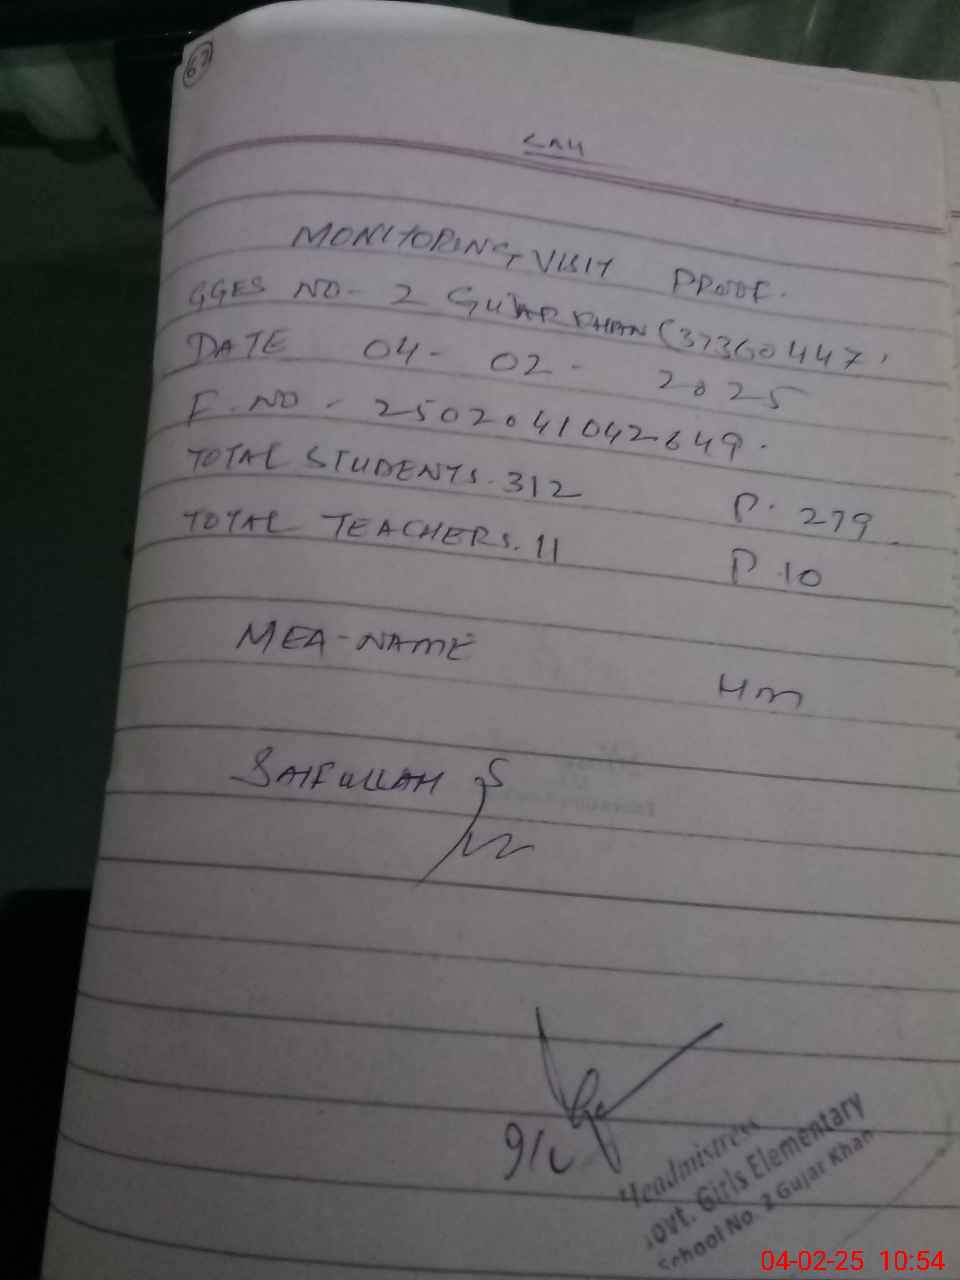 62
MONITORING VISIT PROOF.
GGES NO- 2 GUJAR KHAN (37360447)
DATE 04- 02- 2025
F. NO - 2502041042649.
TOTAL STUDENTS. 312 P. 279
TOTAL TEACHERS. 11 P. 10
MEA-NAME
HM
SAIFULLAH
9/c
Headmistress
Govt. Girls Elementary
School No. 2 Gujar Khan
04-02-25 10:54